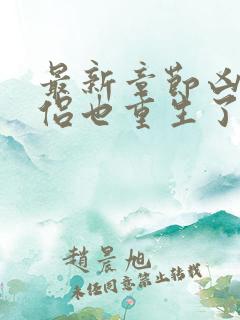 最新章节凶
侣也重生了
趙晨旭
未经同意禁止转载